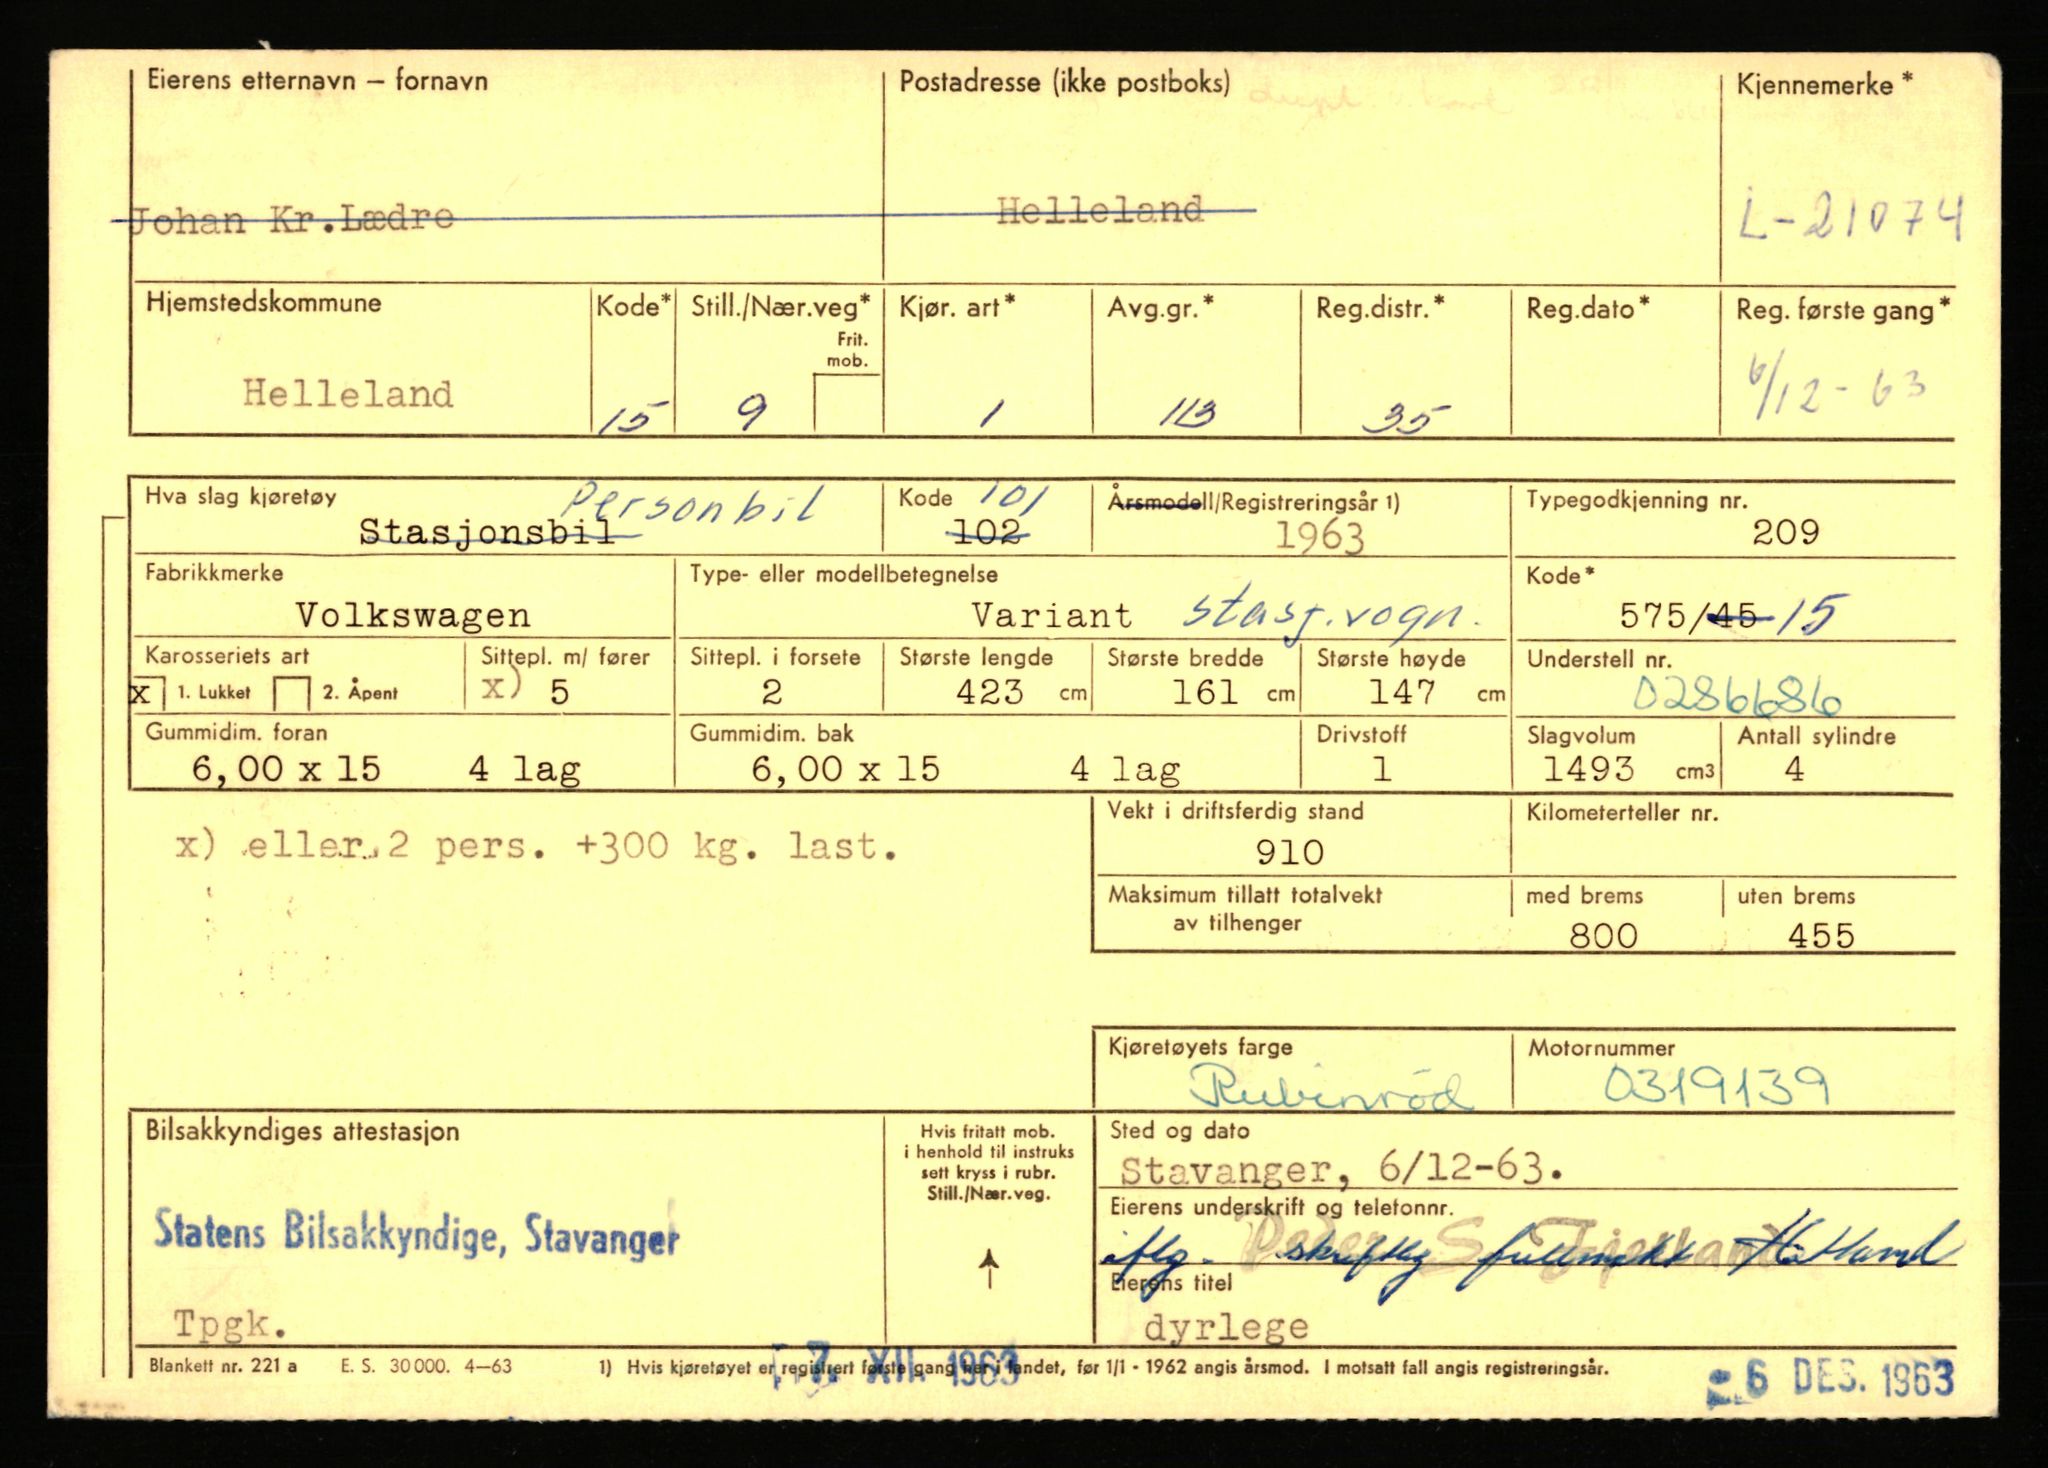 Eierens etternavn – fornavn
Postadresse (ikke postboks)
Kjennemerke*
Johan Kr.Lædre
Helleland
L-21074
Hjemstedskommune
Kode*
Still./Nær.veg*
Frit. mob.
Kjør. art*
Avg.gr.*
Reg.distr.*
Reg.dato*
Reg. første gang*
Helleland
15
9
1
113
35
6/12-63
Hva slag kjøretøy
Personbil
Stasjonsbil
Kode 101
102
Årsmodell/Registreringsår 1)
1963
Typegodkjenning nr.
209
Fabrikkmerke
Volkswagen
Type- eller modellbetegnelse
Variant stasj.vogn.
Kode*
575/45 15
Karosseriets art
x 1. Lukket 2. Åpent
Sittepl. m/ fører
x) 5
Sittepl. i forsete
2
Største lengde
423 cm
Største bredde
161 cm
Største høyde
147 cm
Understell nr.
0286686
Gummidim. foran
6,00 x 15 4 lag
Gummidim. bak
6,00 x 15 4 lag
Drivstoff
1
Slagvolum
1493 cm3
Antall sylindre
4
x) eller 2 pers. +300 kg. last.
Vekt i driftsferdig stand
910
Kilometerteller nr.
Maksimum tillatt totalvekt
av tilhenger
med brems
800
uten brems
455
Kjøretøyets farge
Rubinrød
Motornummer
0319139
Bilsakkyndiges attestasjon
Statens Bilsakkyndige, Stavanger
Tpgk.
Hvis fritatt mob.
i henhold til instruks
sett kryss i rubr.
Still./Nær.veg.
Sted og dato
Stavanger, 6/12-63.
Eierens underskrift og telefonnr.
iflg. skriftlig fullmakt
Eierens titel
dyrlege
Blankett nr. 221 a E. S. 30 000. 4–63
1) Hvis kjøretøyet er registrert første gang her i landet, før 1/1 - 1962 angis årsmod. I motsatt fall angis registreringsår.
7. XII. 1963
6 DES. 1963